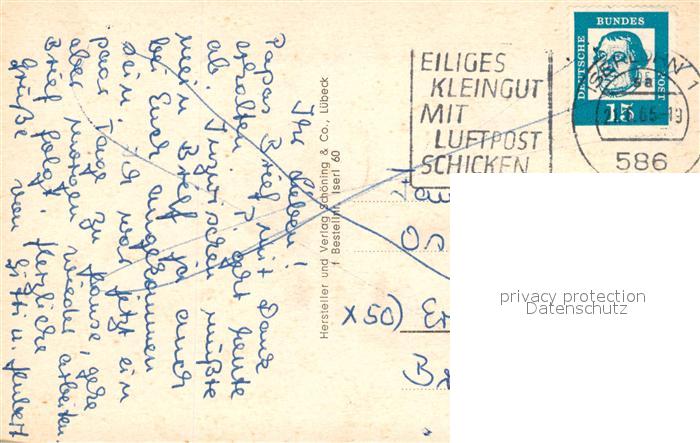 Ihr Lieben!
Papas Brief mit Dank
erhalten, geht heute
ab. Inzwischen müßte
mein Brief ja auch
bei Euch angekommen
sein. Ich war jetzt ein
paar Tage zu Hause, gehe
aber morgen wieder arbeiten.
Brief folgt. Herzliche
Grüße von Gitti u. Hubert
Hersteller und Verlag Schöning & Co., Lübeck
Bestellnr. Iserl 60
EILIGES
KLEINGUT
MIT
LUFTPOST
SCHICKEN
DEUTSCHE BUNDESPOST
15
ISERLOHN 1
sa
65-19
586
x50)
privacy protection
Datenschutz